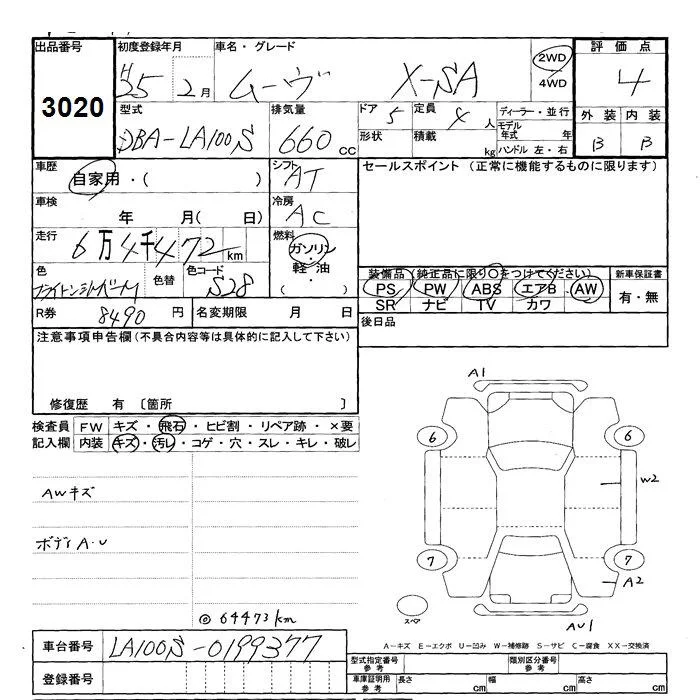 出品番号 初度登録年月 車名・グレード 評価点
3020 H25 2月 ムーヴ X-SA 2WD 4WD 4
型式 排気量 ドア 5 定員 4人 ディーラー・並行 外装 内装
DBA-LA100S 660cc 形状 積載 kg モデル年式 年 B B
ハンドル 左・右
車歴 自家用・( ) シフト AT セールスポイント (正常に機能するものに限ります)
車検 年 月( 日) 冷房 AC
走行 6万4千472km 燃料 ガソリン・軽油・( )
色 色替 色コード S28
装備品(純正品に限り○をつけてください) 新車保証書
PS PW ABS エアB AW 有・無
SR ナビ TV カワ
R券 8490円 名変期限 月 日 後日品
注意事項申告欄(不具合内容等は具体的に記入して下さい)
修復歴 有〔箇所 〕
検査員記入欄 FW キズ・飛石・ヒビ割・リペア跡・×要
内装 キズ・汚レ・コゲ・穴・スレ・キレ・破レ
AWキズ
ボディA・U
◎64473km
A1
6 6
W2
7 7
A2
スペア
AU1
A－キズ E－エクボ U－凹み W－補修跡 S－サビ C－腐食 XX－交換済
車台番号 LA100S-0199377
型式指定番号 参考 類別区分番号 参考
登録番号 車庫証明用 参考 長さ cm 幅 cm 高さ cm